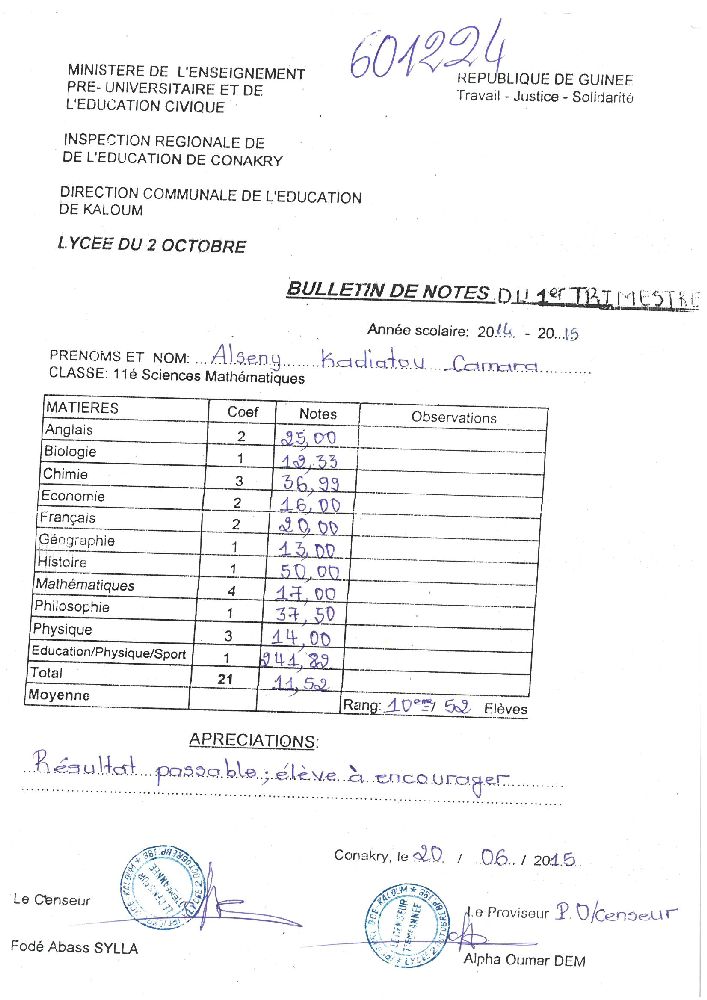 601224
MINISTERE DE L'ENSEIGNEMENT
PRE- UNIVERSITAIRE ET DE
L'EDUCATION CIVIQUE
REPUBLIQUE DE GUINEE
Travail - Justice - Solidarité
INSPECTION REGIONALE DE
DE L'EDUCATION DE CONAKRY
DIRECTION COMMUNALE DE L'EDUCATION
DE KALOUM
LYCEE DU 2 OCTOBRE
BULLETIN DE NOTES DU 1er TRIMESTRE
Année scolaire: 2014 - 2015
PRENOMS ET NOM: Alseny Kadiatou Camara
CLASSE: 11é Sciences Mathématiques
MATIERES Coef Notes Observations
Anglais 2 25,00
Biologie 1 12,33
Chimie 3 36,99
Economie 2 16,00
Français 2 20,00
Géographie 1 13,00
Histoire 1 50,00
Mathématiques 4 17,00
Philosophie 1 37,50
Physique 3 14,00
Education/Physique/Sport 1 241,82
Total 21 11,52
Moyenne Rang: 10e / 52 Elèves
APRECIATIONS:
Résultat passable; élève à encourager
Conakry, le 20 / 06 / 2015
Le Censeur
Le Proviseur P.O/Censeur
Fodé Abass SYLLA
Alpha Oumar DEM